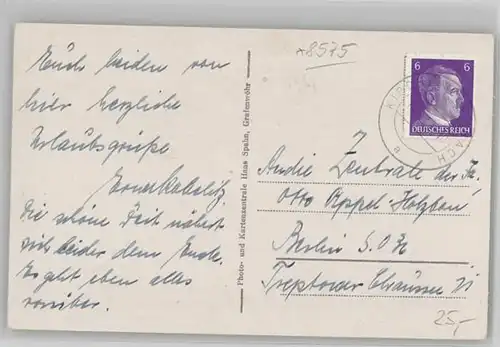 *8575
Euch beiden von
hier herzliche
Urlaubsgrüße
Die schöne Zeit nähert
sich leider dem Ende.
Es geht eben alles
vorüber.
Photo- und Kartenzentrale Hans Spahn, Grafenwöhr
6 6
DEUTSCHES REICH
An die Zentrale der Fa.
Otto Appel-Holzbau
Berlin S.O.
Treptower Chaussee
25,-